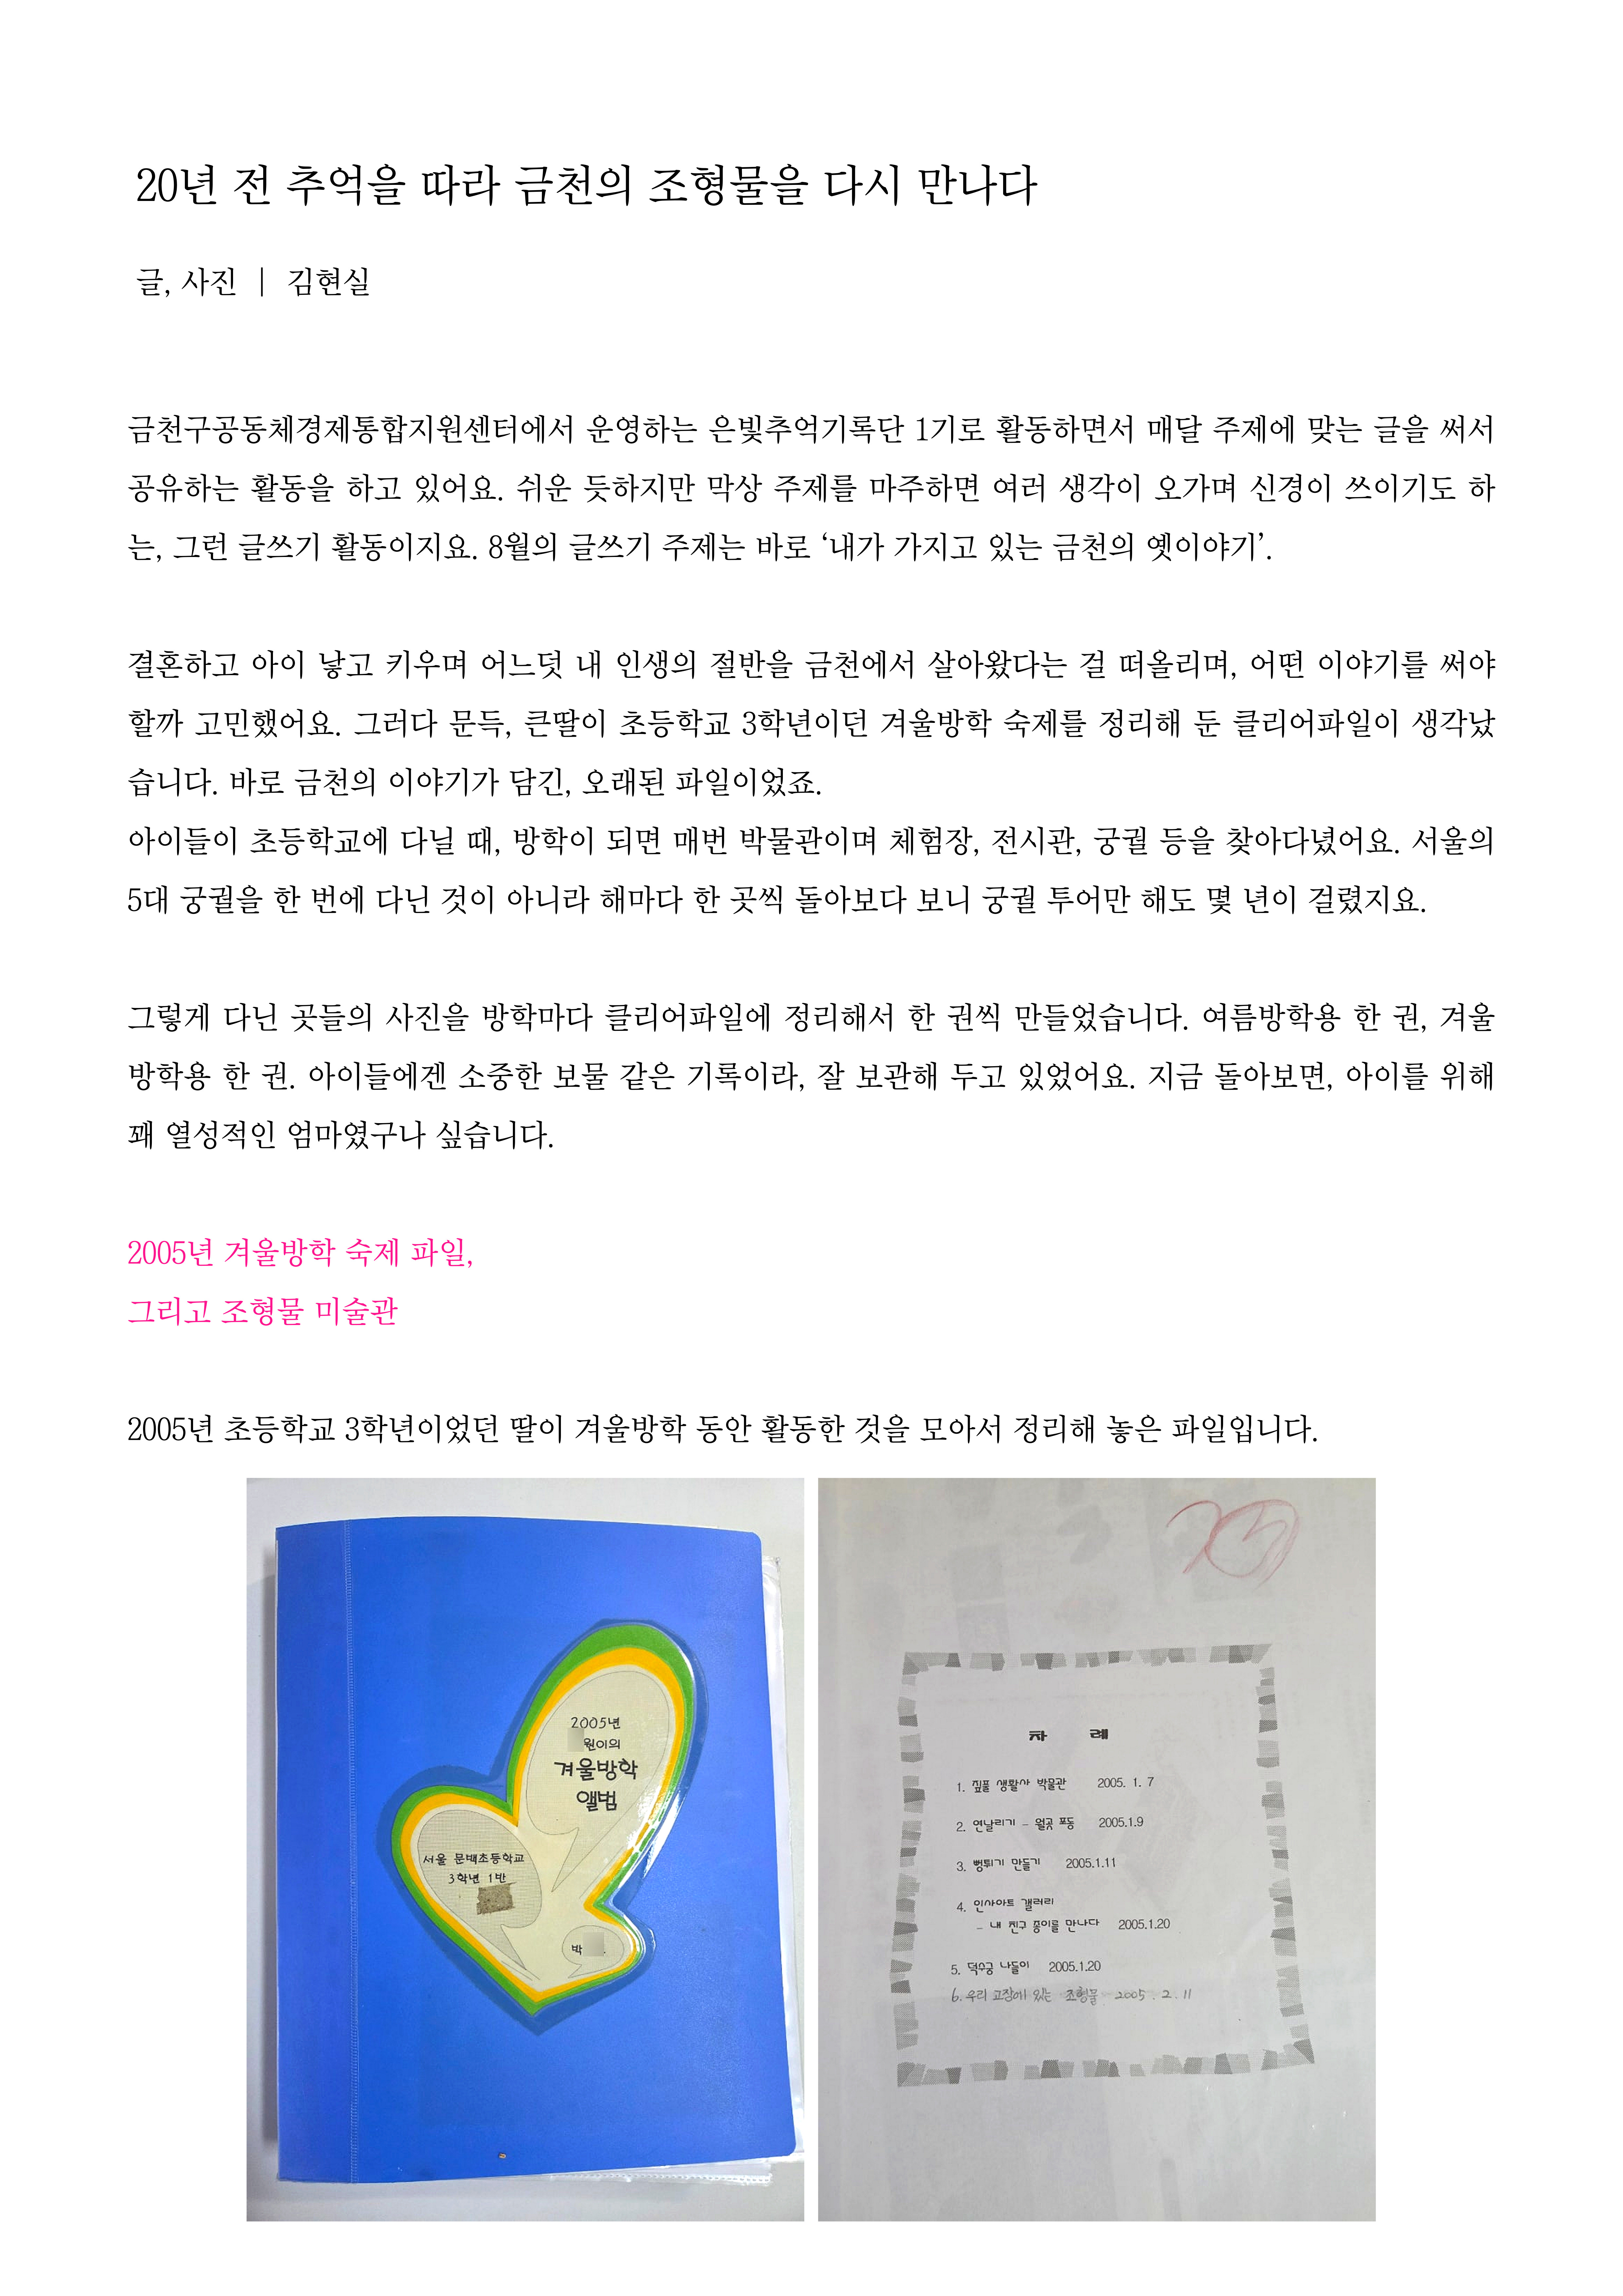 20년 전 추억을 따라 금천의 조형물을 다시 만나다
글, 사진 | 김현실
금천구공동체경제통합지원센터에서 운영하는 은빛추억기록단 1기로 활동하면서 매달 주제에 맞는 글을 써서
공유하는 활동을 하고 있어요. 쉬운 듯하지만 막상 주제를 마주하면 여러 생각이 오가며 신경이 쓰이기도 하
는, 그런 글쓰기 활동이지요. 8월의 글쓰기 주제는 바로 ‘내가 가지고 있는 금천의 옛이야기’.
결혼하고 아이 낳고 키우며 어느덧 내 인생의 절반을 금천에서 살아왔다는 걸 떠올리며, 어떤 이야기를 써야
할까 고민했어요. 그러다 문득, 큰딸이 초등학교 3학년이던 겨울방학 숙제를 정리해 둔 클리어파일이 생각났
습니다. 바로 금천의 이야기가 담긴, 오래된 파일이었죠.
아이들이 초등학교에 다닐 때, 방학이 되면 매번 박물관이며 체험장, 전시관, 궁궐 등을 찾아다녔어요. 서울의
5대 궁궐을 한 번에 다닌 것이 아니라 해마다 한 곳씩 돌아보다 보니 궁궐 투어만 해도 몇 년이 걸렸지요.
그렇게 다닌 곳들의 사진을 방학마다 클리어파일에 정리해서 한 권씩 만들었습니다. 여름방학용 한 권, 겨울
방학용 한 권. 아이들에겐 소중한 보물 같은 기록이라, 잘 보관해 두고 있었어요. 지금 돌아보면, 아이를 위해
꽤 열성적인 엄마였구나 싶습니다.
2005년 겨울방학 숙제 파일,
그리고 조형물 미술관
2005년 초등학교 3학년이었던 딸이 겨울방학 동안 활동한 것을 모아서 정리해 놓은 파일입니다.
2005년
원이의
겨울방학
앨범
서울 문백초등학교
3학년 1반
박
차 례
1. 짚풀 생활사 박물관 2005. 1. 7
2. 연날리기 - 월곶 포동 2005.1.9
3. 뻥튀기 만들기 2005.1.11
4. 인사아트 갤러리
- 내 친구 종이를 만나다 2005.1.20
5. 덕수궁 나들이 2005.1.20
6. 우리 고장에 있는 조형물 2005. 2. 11